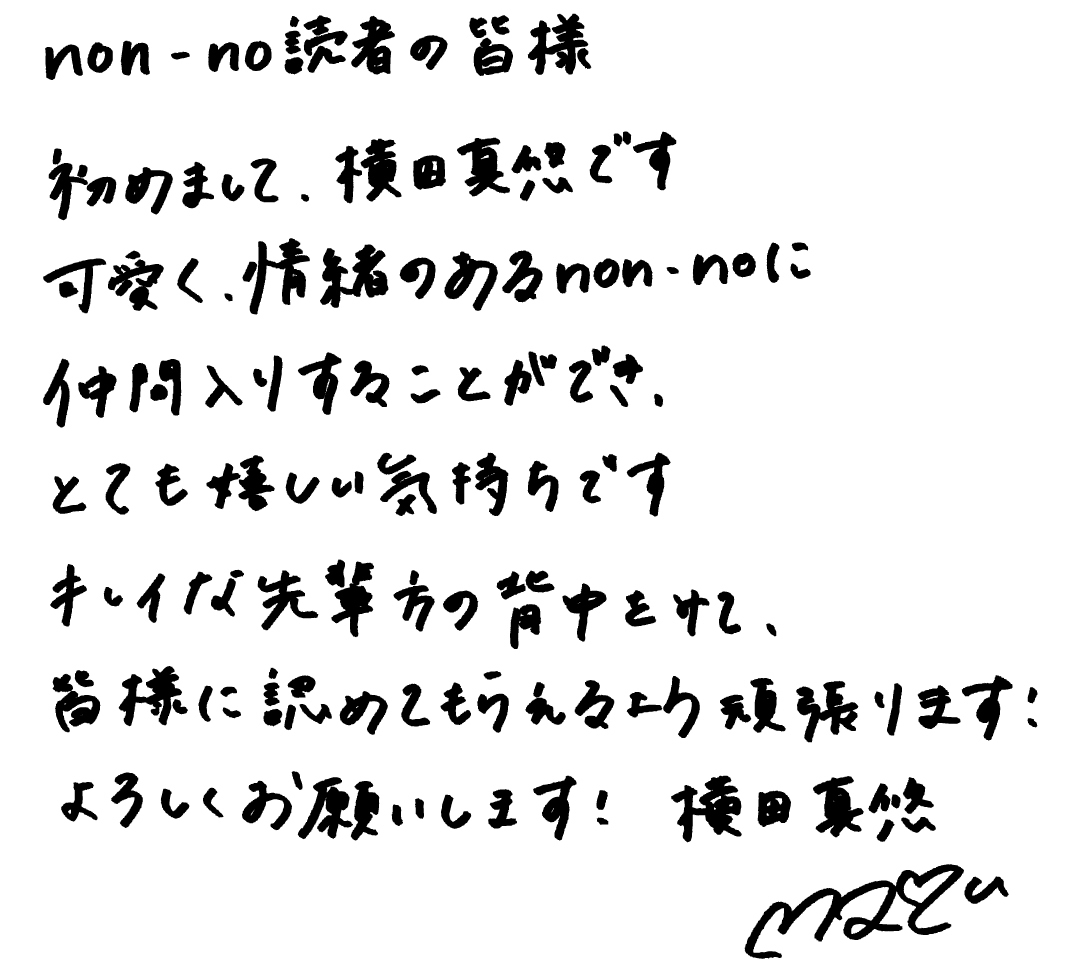 non-no読者の皆様
初めまして、横田真悠です
可愛く、情緒のあるnon-noに
仲間入りすることができ、
とても嬉しい気持ちです
キレイな先輩方の背中をみて、
皆様に認めてもらえるよう頑張ります!
よろしくお願いします! 横田真悠